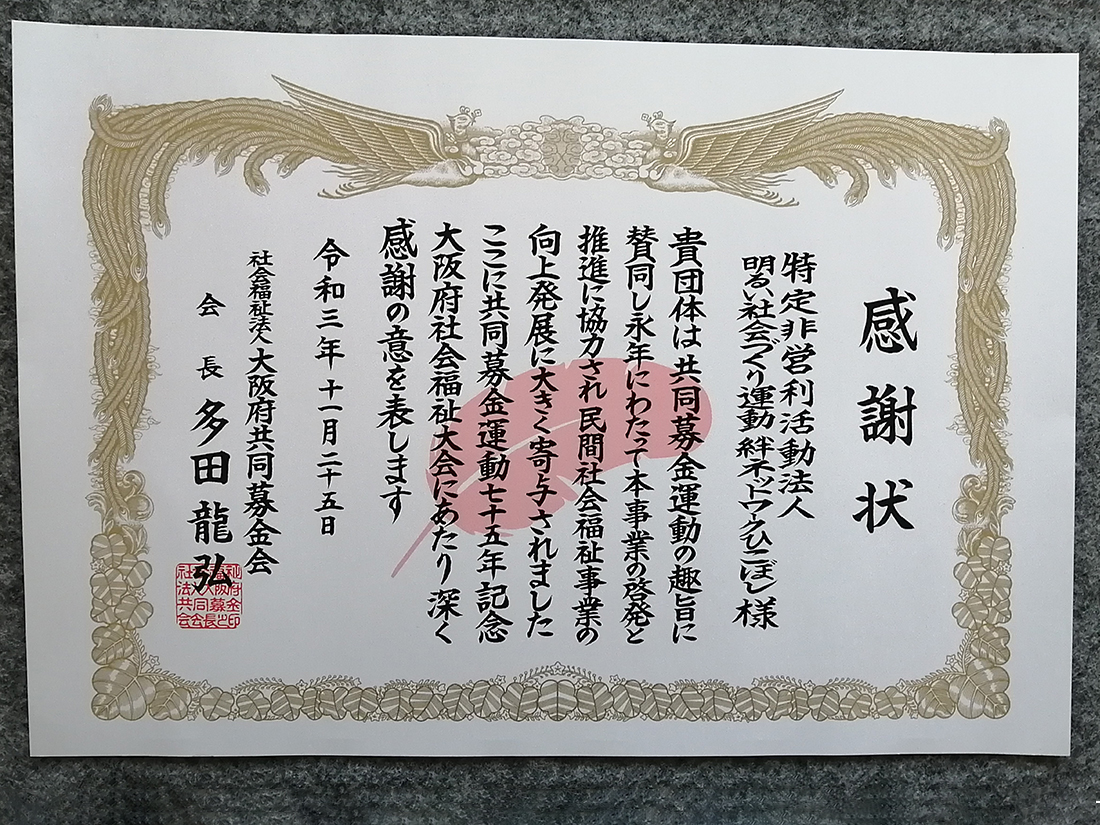 感謝状
特定非営利活動法人
明るい社会づくり運動 絆ネットワークひこぼし 様
貴団体は共同募金運動の趣旨に
賛同し永年にわたって本事業の啓発と
推進に協力され民間社会福祉事業の
向上発展に大きく寄与されました
ここに共同募金運動七十五年記念
大阪府社会福祉大会にあたり深く
感謝の意を表します
令和三年十一月二十五日
社会福祉法人 大阪府共同募金会
会長 多田龍弘